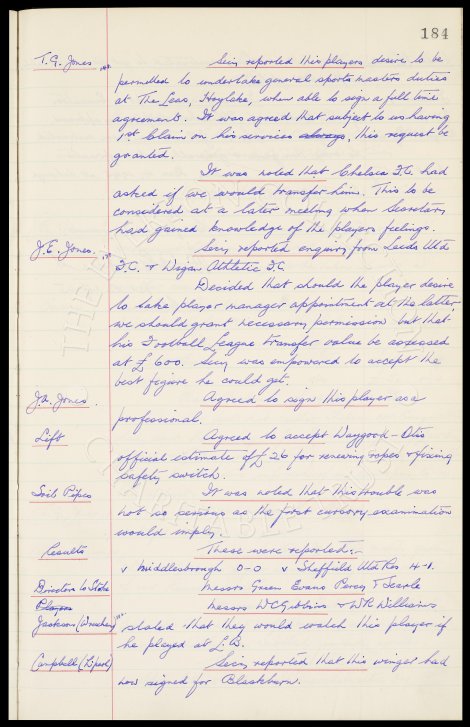 184
T.G. Jones Secy reported this players desire to be
permitted to undertake general sports masters duties
at The Leas, Hoylake, when able to sign a full time
agreement. It was agreed that subject to us having
1st Claim on his services always, this request be
granted.
It was noted that Chelsea F.C. had
asked if we would transfer him. This to be
considered at a later meeting when Secretary
had gained knowledge of the players feelings.
J.E. Jones. Secy reported enquiry from Leeds Utd
F.C. & Wigan Athletic F.C.
Decided that should the player desire
to take player manager appointment at the latter,
we should grant necessary permission but that
his Football League transfer value be assessed
at £600. Secy was empowered to accept the
best figure he could get.
J.A. Jones. Agreed to sign this player as a
professional.
Lift Agreed to accept Waygood-Otis
official estimate of £26 for renewing ropes & fixing
safety switch.
Soil Pipes It was noted that this trouble was
not so serious as the first cursory examination
would imply.
Results These were reported:-
v Middlesbrough 0-0 v Sheffield Utd Res 4-1.
Directors to Stoke Messrs Green Evans Percy & Searle
Players Messrs W C Gibbins & W R Williams
Jackson (Wrexham) stated that they would watch this player if
he played at L'
Campbell (L'pool) Secy reported that this winger had
now signed for Blackburn.